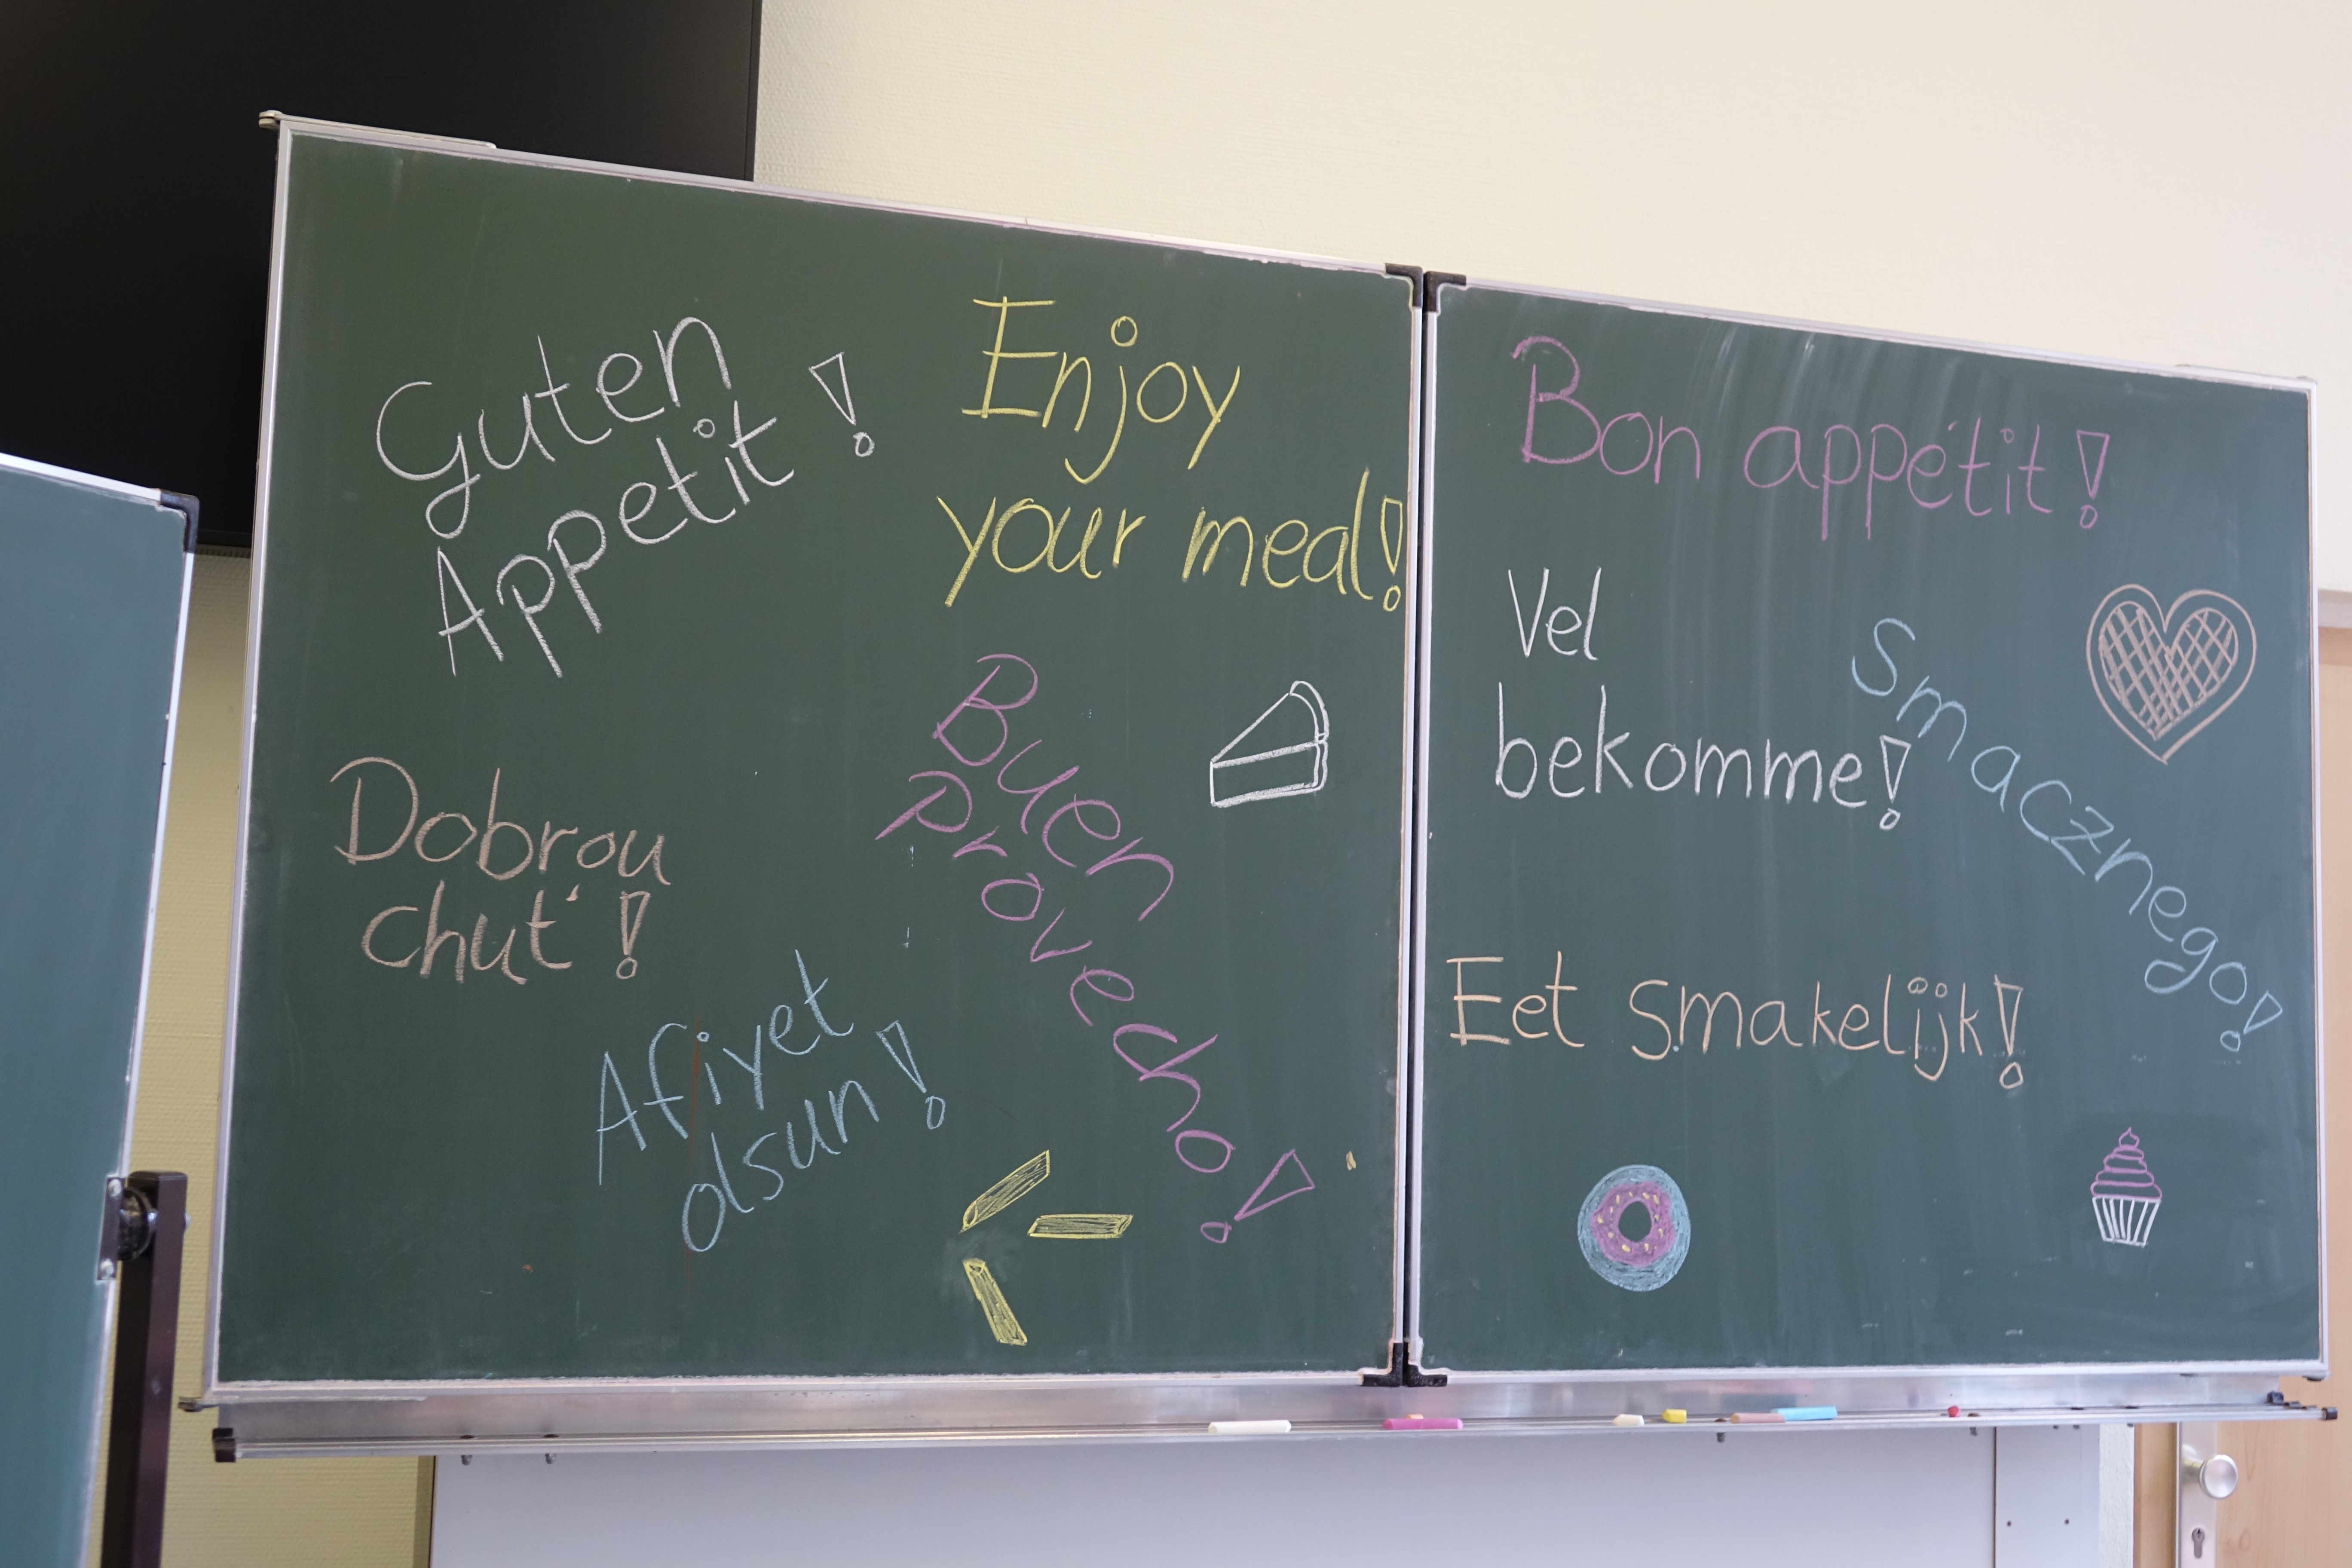 Guten
Appetit!
Enjoy
your meal!
Dobrou
chut'!
Buen
Provecho!
Afiyet
olsun!
Bon appétit!
Vel
bekomme!
Smacznego!
Eet smakelijk!